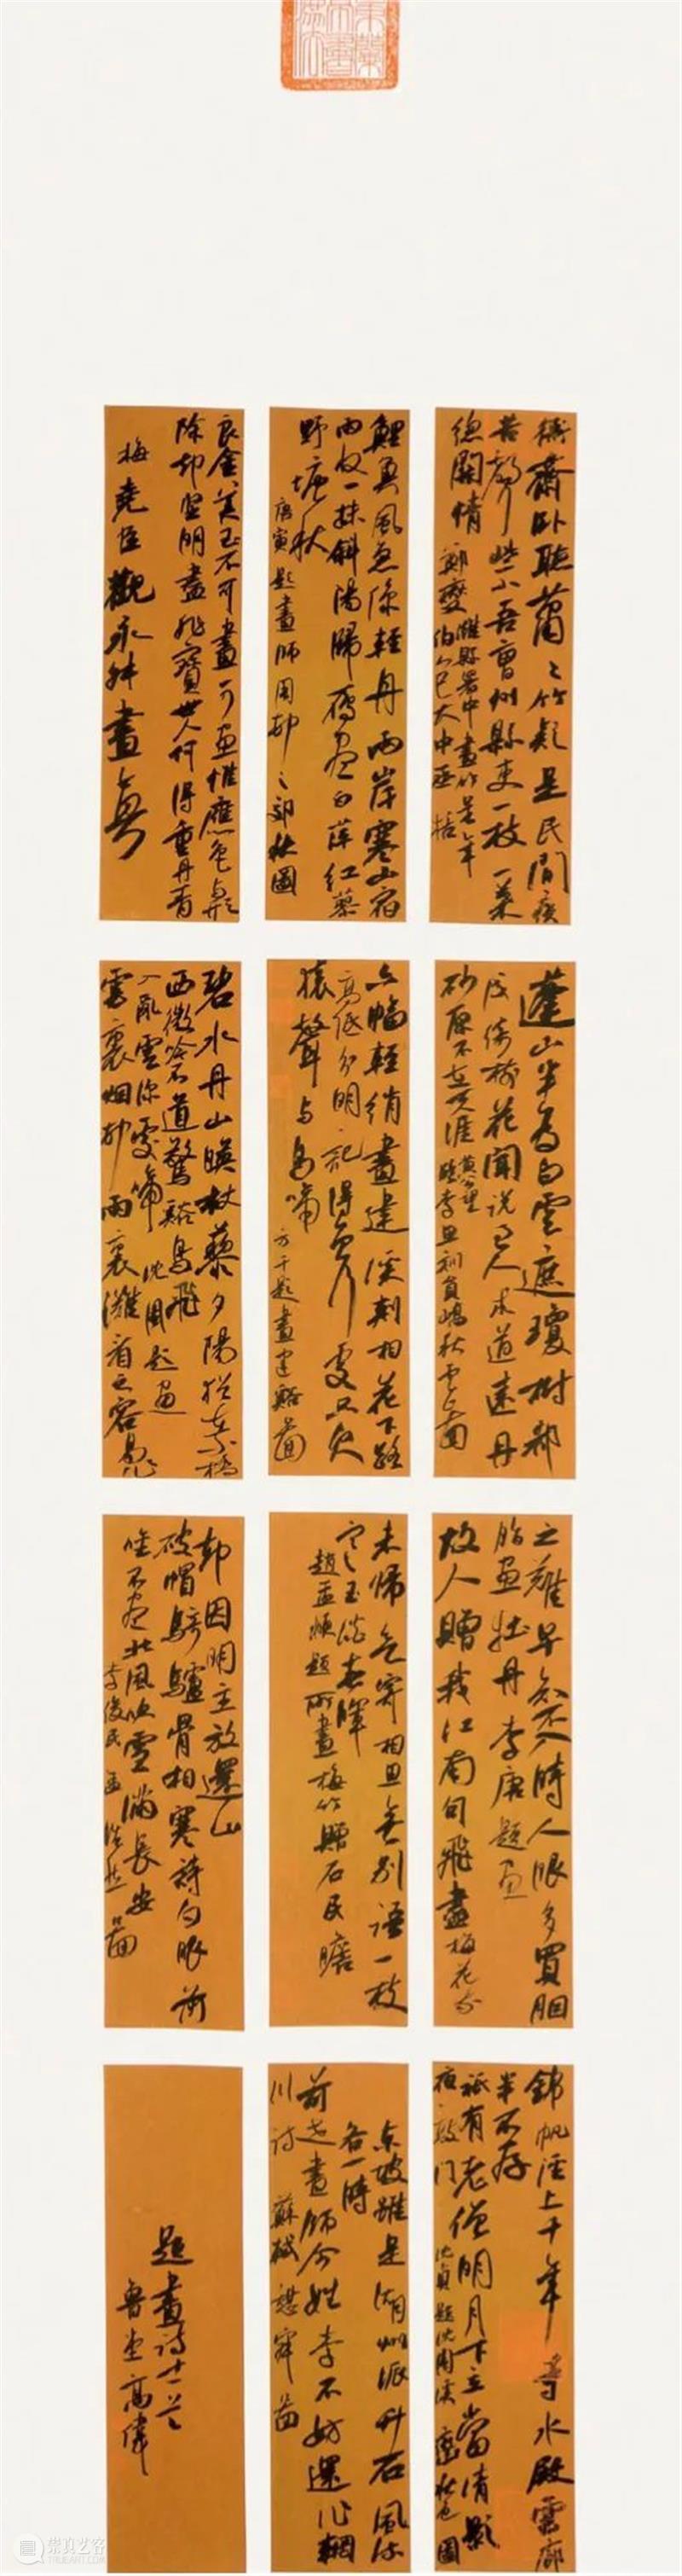 衙齋卧聽蕭〻竹疑是民間疾
苦聲些小吾曹州縣吏一枝一葉
總關情 鄭燮濰縣署中畫竹呈年
伯包大中丞括
鯉魚風急係輕舟兩岸寒山宿
雨收一抹斜陽歸雁盡白蘋紅蓼
野塘秋
唐寅題畫師周邨之郊秋圖
良金美玉不可畫可畫惟應色与形
除却堅明盡非寶世人何得重丹青
梅堯臣觀永叔畫真
蓬山半為白雲遮瓊樹都
成綺樹花聞說至人求道遠丹
砂原不在天涯 黄公望
題李思訓員嶠秋雲圖
六幅輕綃畫建溪刺桐花下路
高低分明記得曾行處只欠
猿聲与鳥啼
方干題畫建谿圖
碧水丹山映杖藜夕陽猶在小橋
西微吟不道驚谿鳥飛
入亂雲深處啼 沈周題畫
雲裏烟邨雨裏灘看之容易作
之難早知不入時人眼多買胭
脂畫牡丹 李唐題畫
故人贈我江南句飛盡梅花我
未歸欲寄相思無別語一枝
寒玉澹春暉
趙孟頫題所畫梅竹贈石民瞻
却因明主放還山
破帽騎驢骨相寒詩句眼前
吟不盡北風吹雪滿長安
李俊民孟浩然圖
錦帆涇上千年寺水殿雲廊
半不存
祇有老僧明月下立當清影
夜敲門 沈貞題沈周溪巒秋色圖
東坡雖是湖州派竹石風流
各一時
前世畫師今姓李不妨還作輞
川詩 蘇軾憩寂圖
題畫詩十一首
高偉
崇真艺客